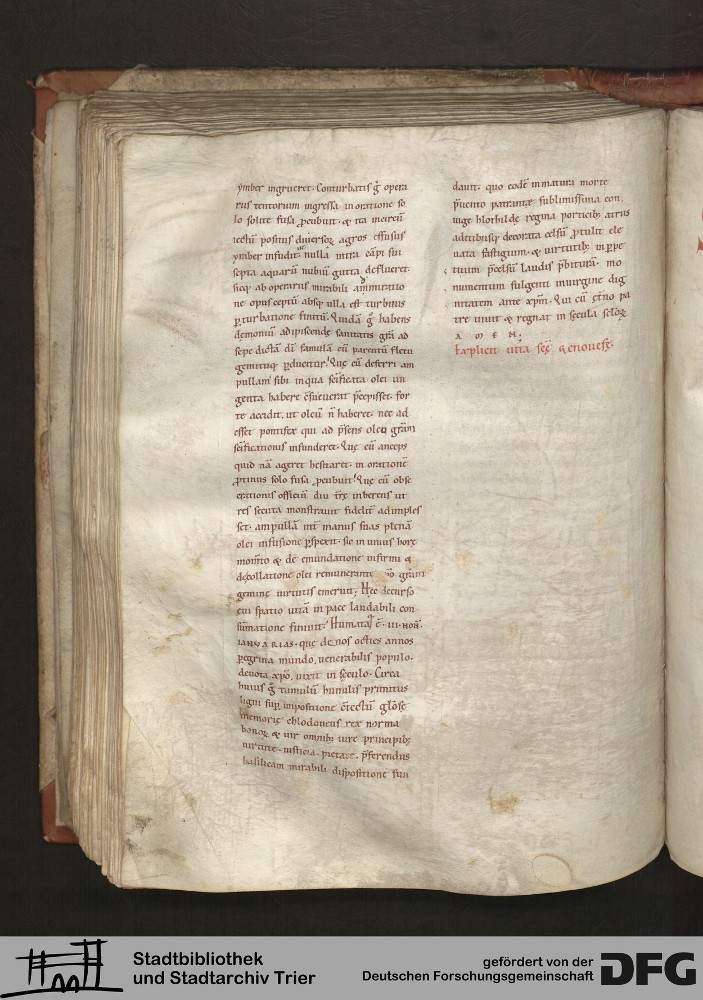 ymber ingrueret. Conturbatis g̃ opera
rus tentorum ingressa in oratione so
lo solite fusa p̱cubuit. & ita mereũ
positus diversoꝝ agros effusus
ymber infudit. ut nulla intra cãpi sui
septa aquarũ nubiũ gutta deflueret.
sicq; ab operariis mirabili ammiratio
ne opus ceptũ absq; ulla est turbinis
p̱turbatione finitũ. Quidã g̃ habens
demoniũ adipiscende sanitatis gr̃a ad
sepe dictã dĩ famulã cũ parentũ fletu
gemituq; p̱ducitur. Quę cũ deferri am
pullam sibi in qua sc̃ificata olei un
guenta habere c̃sueuerat p̃cepisset. for
te accidit, ut oleũ ñ haberet. nec ad
esset pontifex qui ad p̃sens oleo gr̃am
sc̃ificationis infunderet. Quę cũ anceps
quid nã ageret hesitaret. in orationẽ
p̱tinus solo fusa p̱cubuit. Quę cũ obse
crationis officiũ diu tr̃ę inherens ut
res secuta monstrauit fidelit̃ adimples
set. ampullã int̃ manus suas plenã
olei infusione p̱spexit. sic in unius horę
momẽto & de emundatione infirmi &
de collatione olei remunerante xp̃o gr̃am
geminę uirtutis emeruit; Hęc decurso
eui spatio uitã in pace laudabili con
sũmatione finiuit. Humata ẽ. III. NON̄.
IANVARIAS. quę denos octies annos
p̱egrina mundo, uenerabilis populo.
deuota xp̃o, uixit in sęculo. Circa
huius g̃ tumulũ humilis primitus
ligni sup̱ impositione c̃tectũ glõsę
memorię chlodoueus rex norma
bonoꝝ & uir omnib; iure principib;
uirtute. iusticia. pietate. p̃ferendus
basilicam mirabili dispositione fun
dauit. quo eodẽ inmatura morte
p̃uento patrantę sublimissima con
iuge hlothilde regina porticib; atriis
aditibusq; decorata celsũ p̱tulit ele
uata fastigium. & uirtutib; in p̱pe
tuum p̃celsũ laudis p̃biturã. mo
numentum fulgenti in uirgine dig
nitatem ante xp̃m. Qui cũ ęt̃no pa
tre uiuit & regnat in sęcula sc̃loꝝ
A M E N.
Explicit uita sc̃ę Genouefę.
Stadtbibliothek
und Stadtarchiv Trier
gefördert von der
Deutschen Forschungsgemeinschaft
DFG